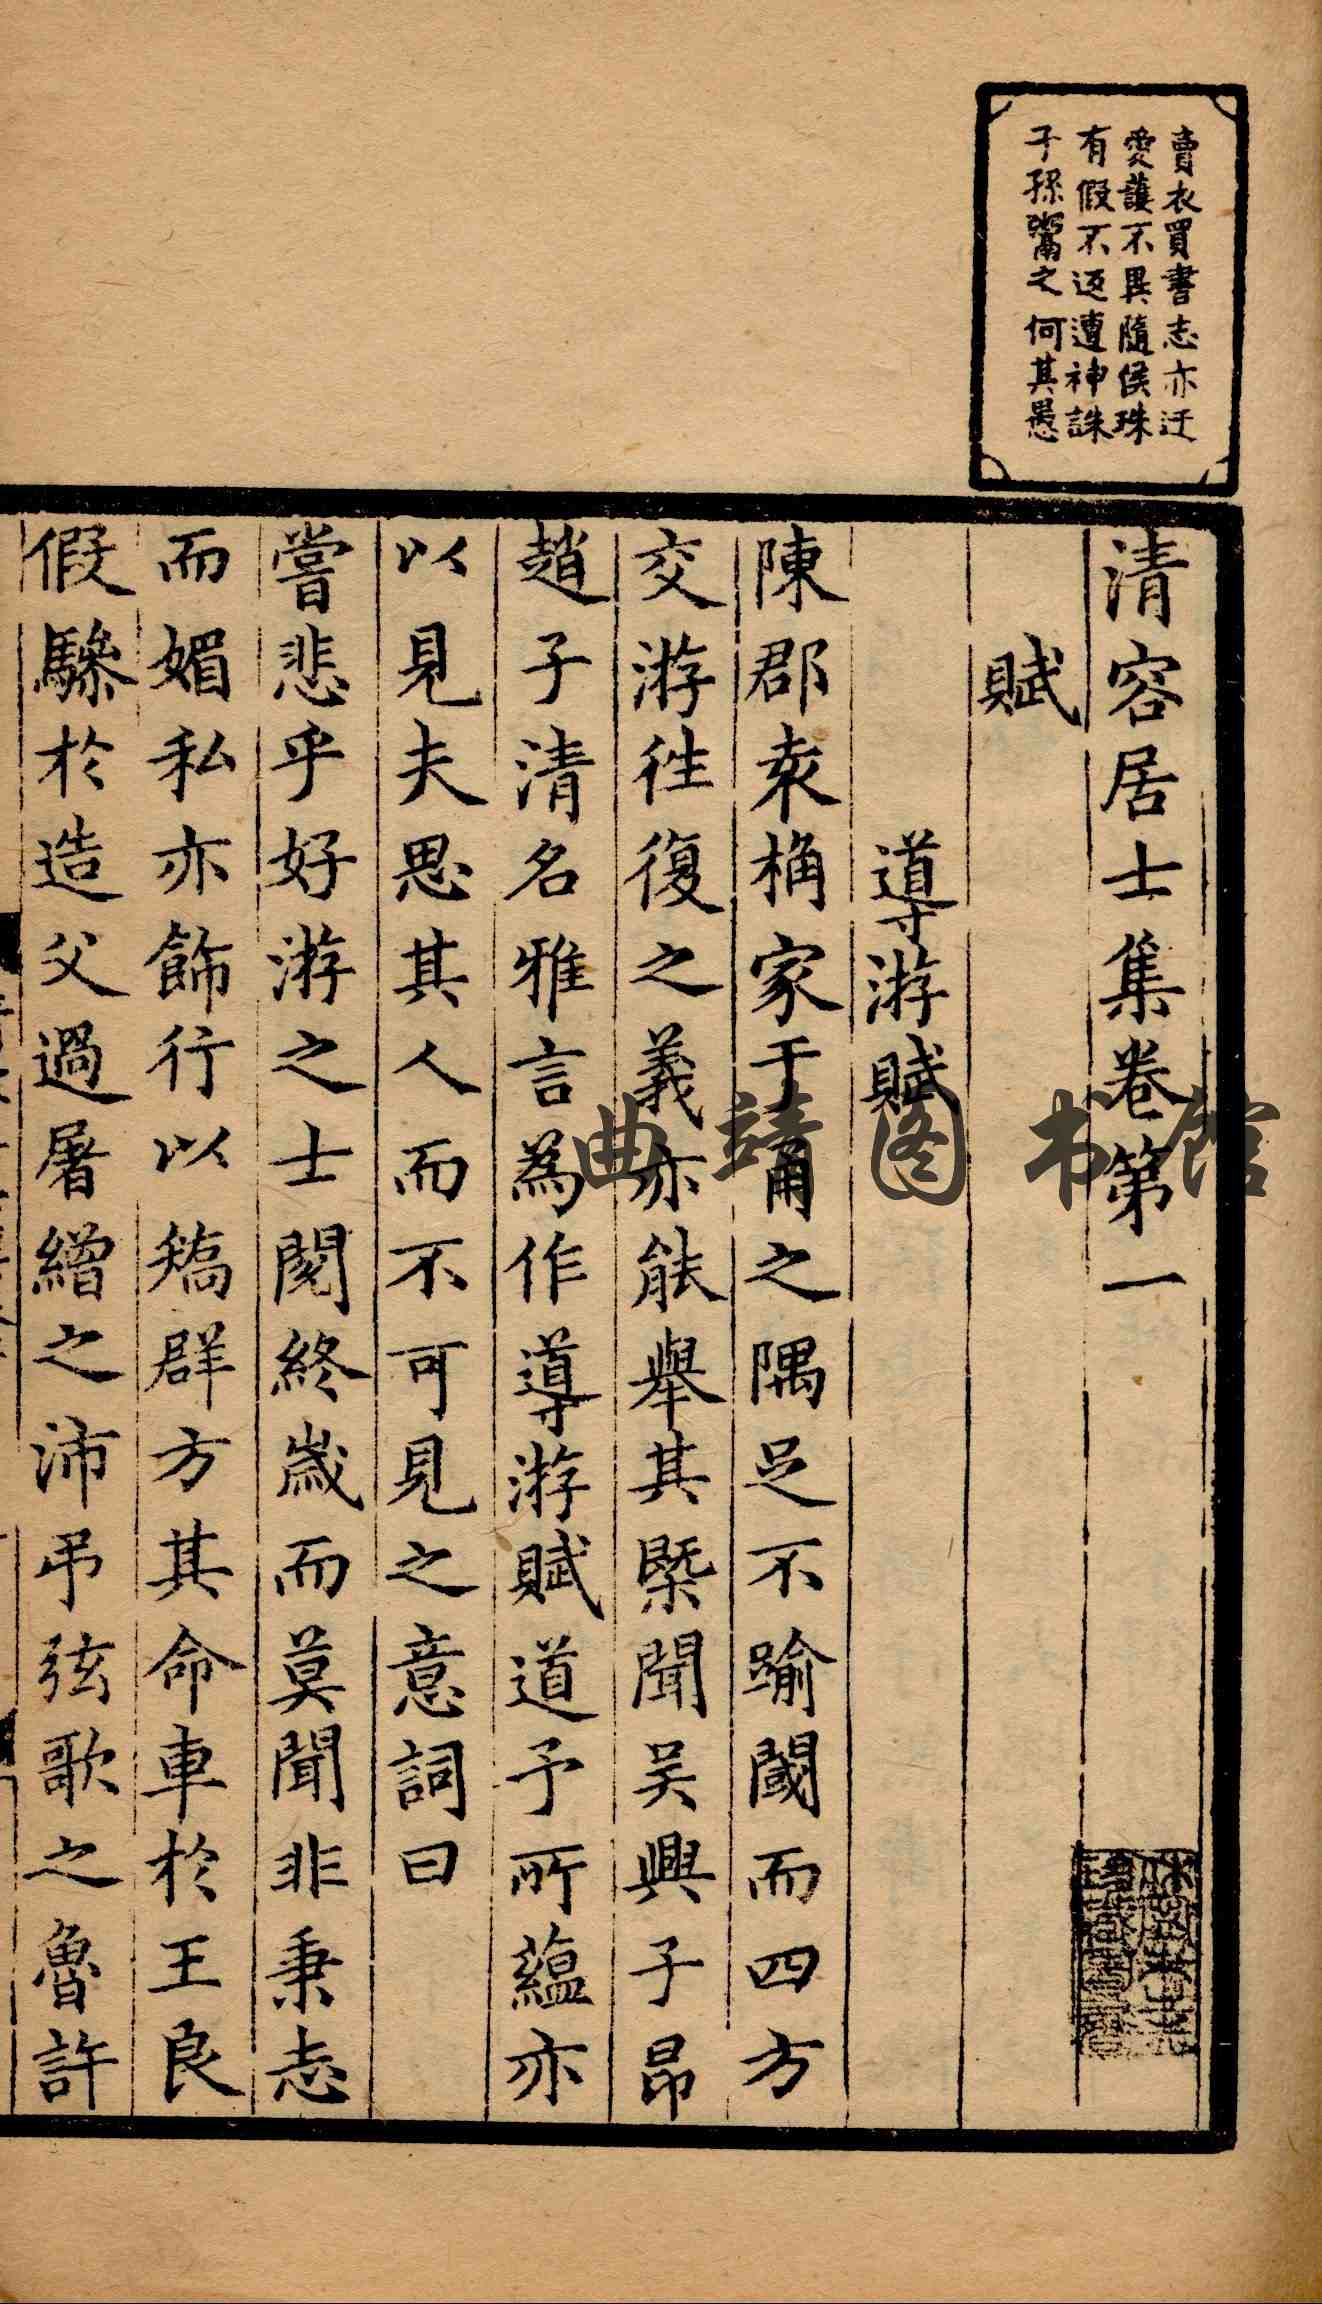 賣衣買書志亦迂
愛護不異隨侯珠
有假不返遭神誅
子孫鬻之何其愚
清容居士集卷第一
賦
導游賦
陳郡袁桷家于甬之隅足不踰閾而四方
交游往復之義亦能舉其槩聞吴興子昂
趙子清名雅言為作導游賦道予所藴亦
以見夫思其人而不可見之意詞曰
嘗悲乎好游之士閱終歲而莫聞非秉志
而媚私亦飾行以矯群方其命車於王良
假驂於造父過屠繒之沛弔弦歌之魯許
曲靖图书馆